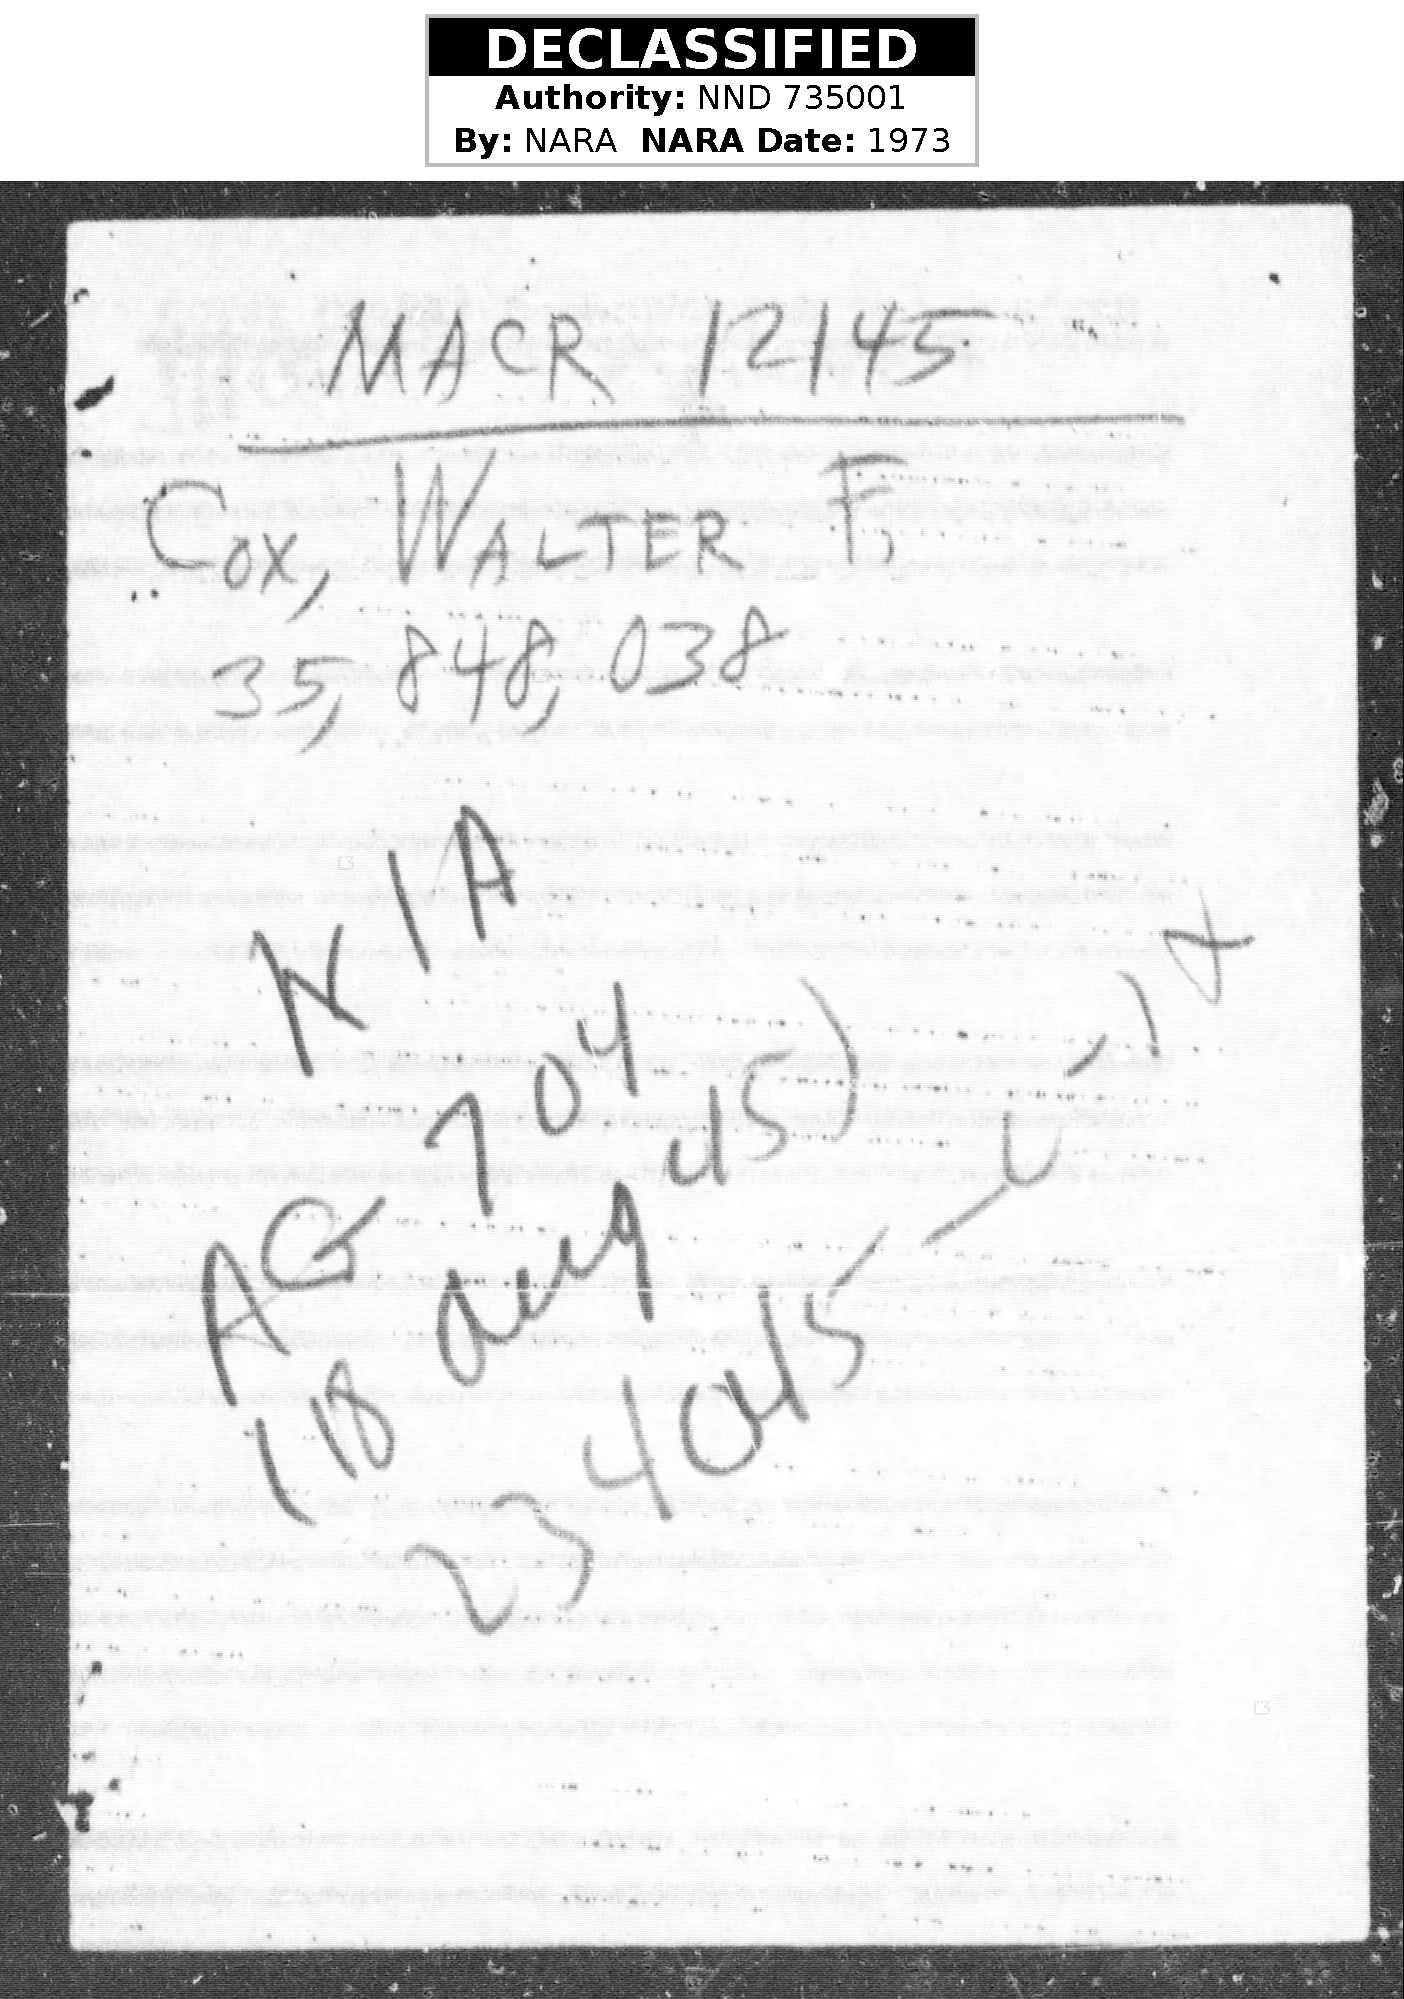 DECLASSIFIED
Authority: NND 735001
By: NARA NARA Date: 1973
MACR 12145
Cox, WALTER F,
35,848,038
N I A
AG 704
(18 Aug 45)
234045